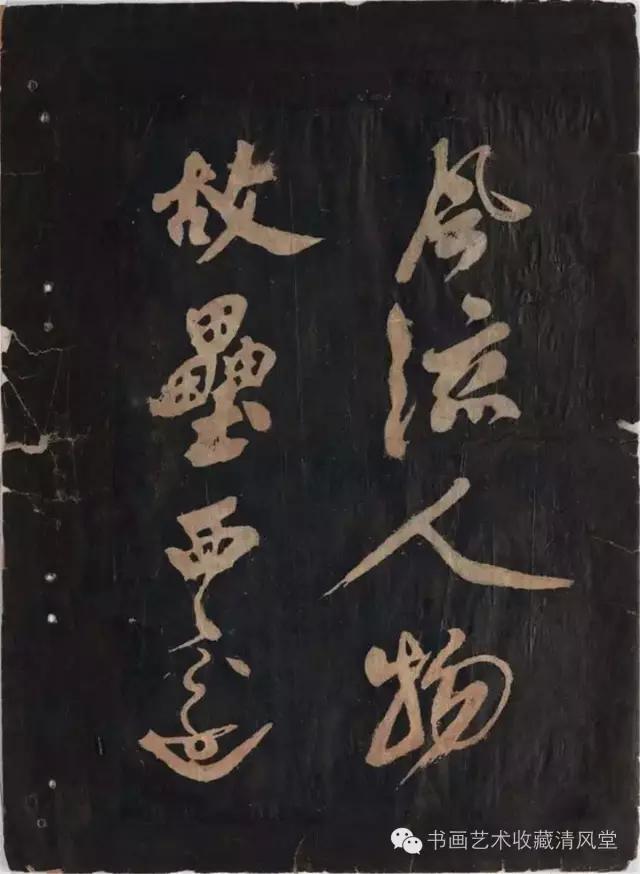 風流人物
故壘西邊
书画艺术收藏清风堂